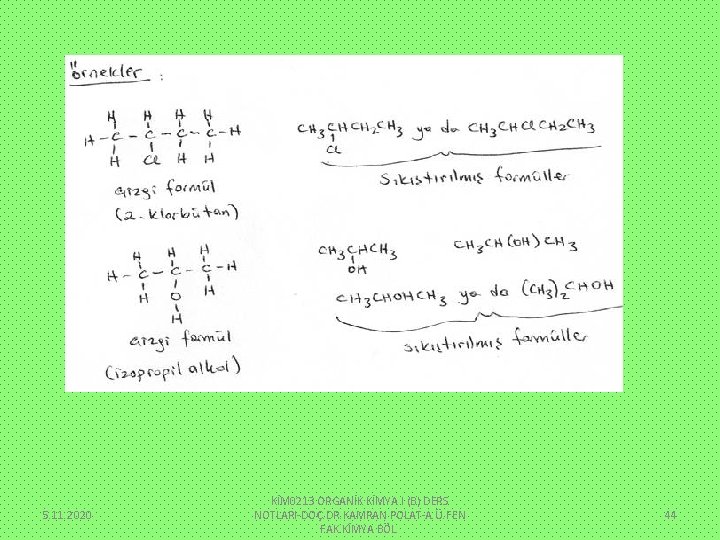 örnekler :
H H H H
H-C-C-C-C-H
H Cl H H
çizgi formül
(2-klorbütan)
CH3CHCH2CH3 ya da CH3CHClCH2CH3
Cl
Sıkıştırılmış formüller
H H H
H-C-C-C-H
H O H
H
çizgi formül
(izopropil alkol)
CH3CHCH3 CH3CH(OH)CH3
OH
CH3CHOHCH3 ya da (CH3)2CHOH
sıkıştırılmış formüller
5.11.2020
KİM0213 ORGANİK KİMYA I (B) DERS
NOTLARI-DOÇ.DR.KAMRAN POLAT-A.Ü.FEN
FAK.KİMYA BÖL
44